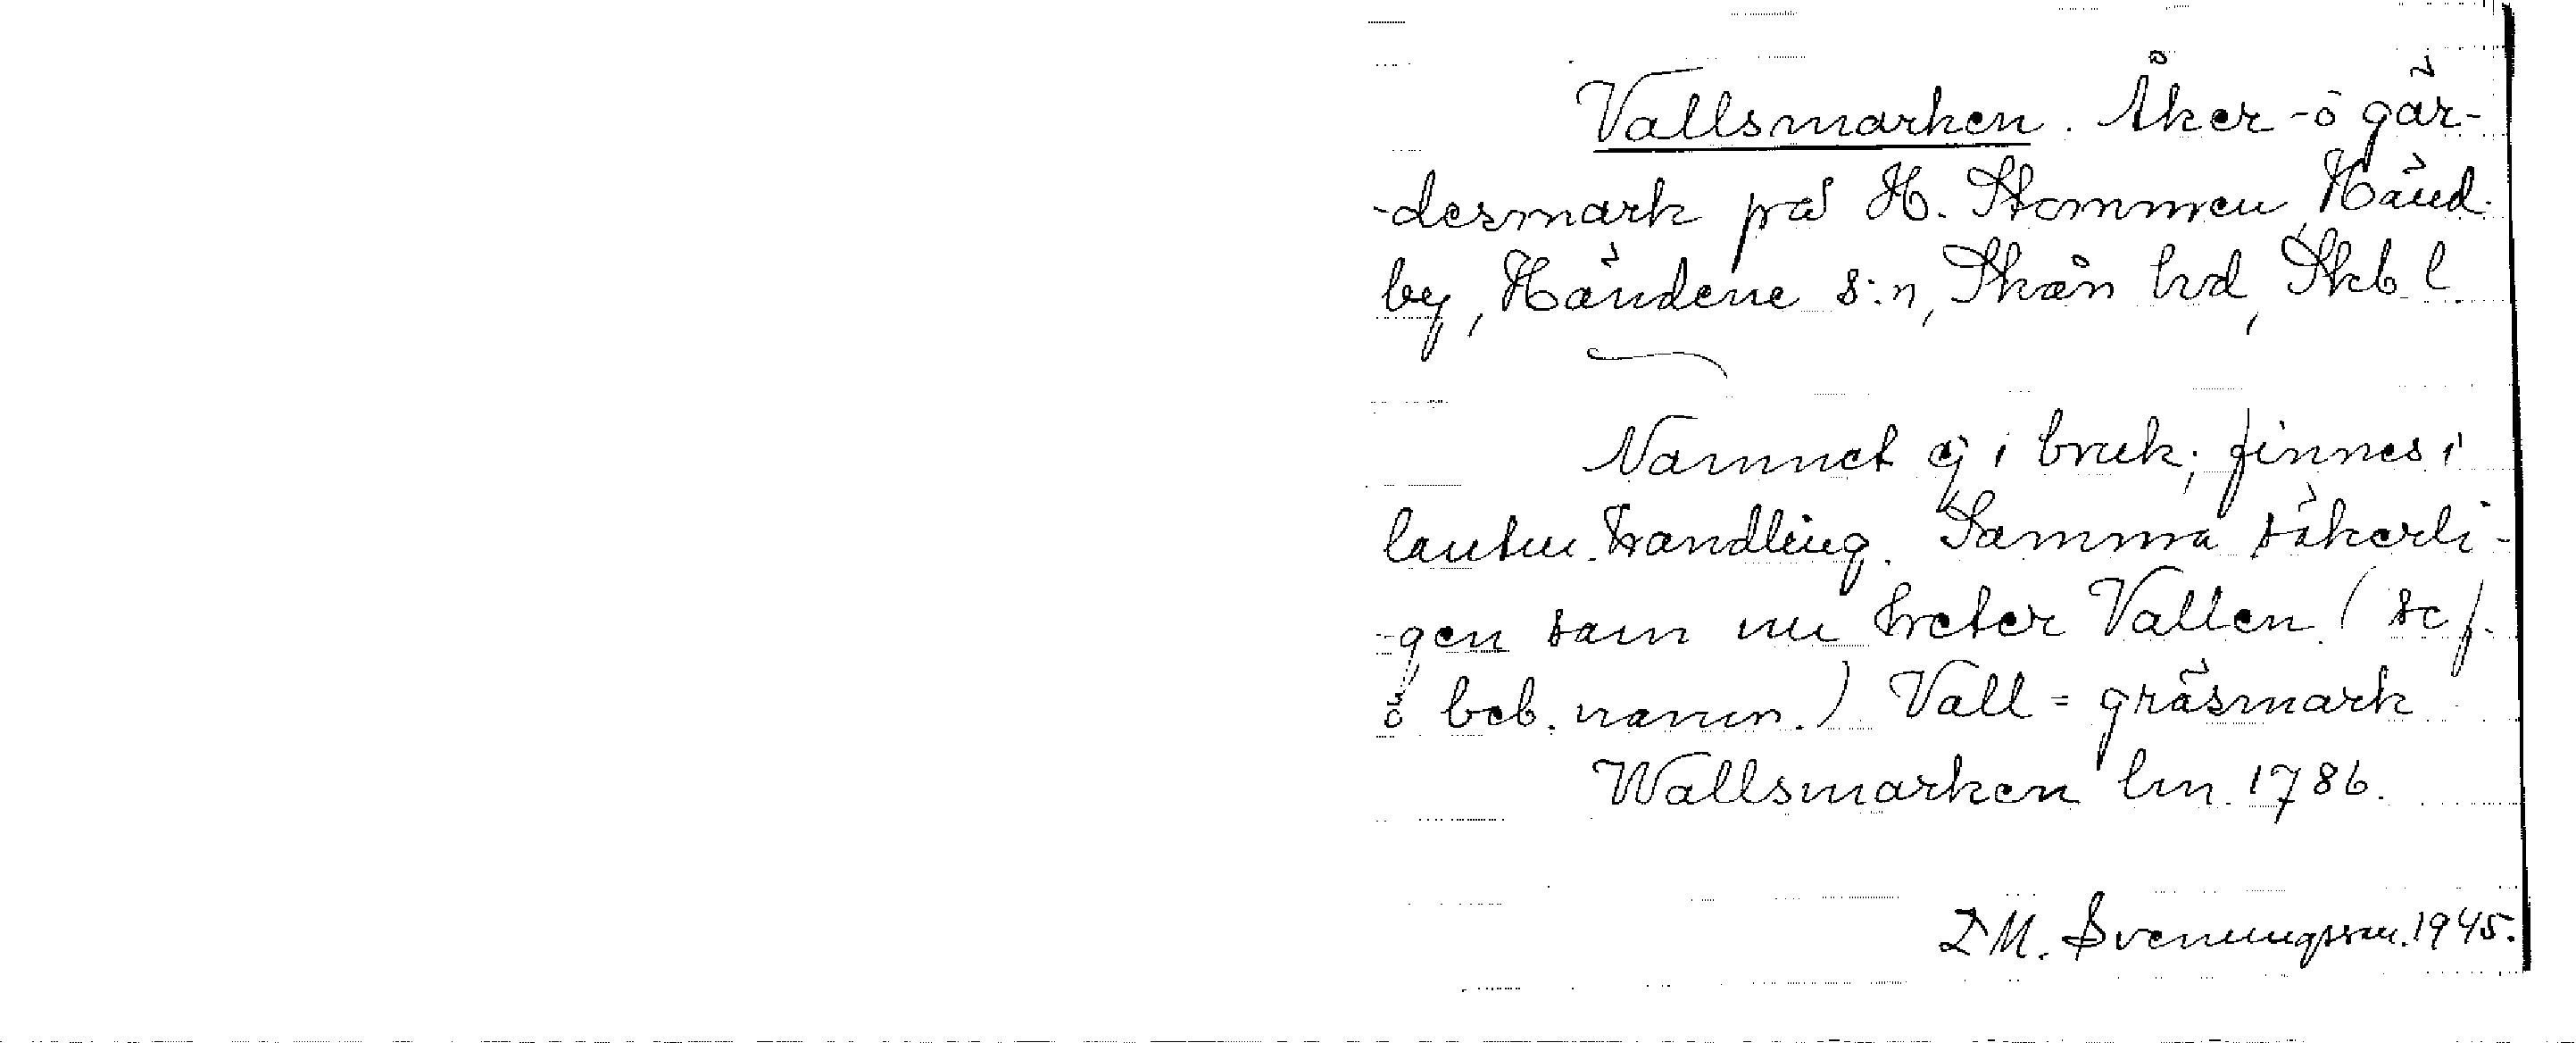 Vallsmarken. Åker- ö gär-
-desmark på H. Stommen, Händ.
by, Händene s:n, Skån hd, Skb l.
Namnet ej i bruk; finnes i
lantm. handling. Samma säkerli-
-gen som nu heter Vallen (se f.
ö beb. namn.) Vall = gräsmark
Wallsmarken lm. 1786.
D M. Svenungsson. 1945.